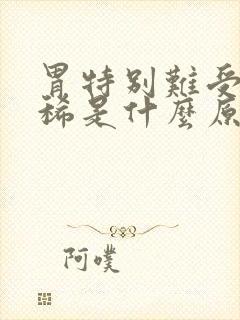 胃特别難受
稀是什麼原
阿噗